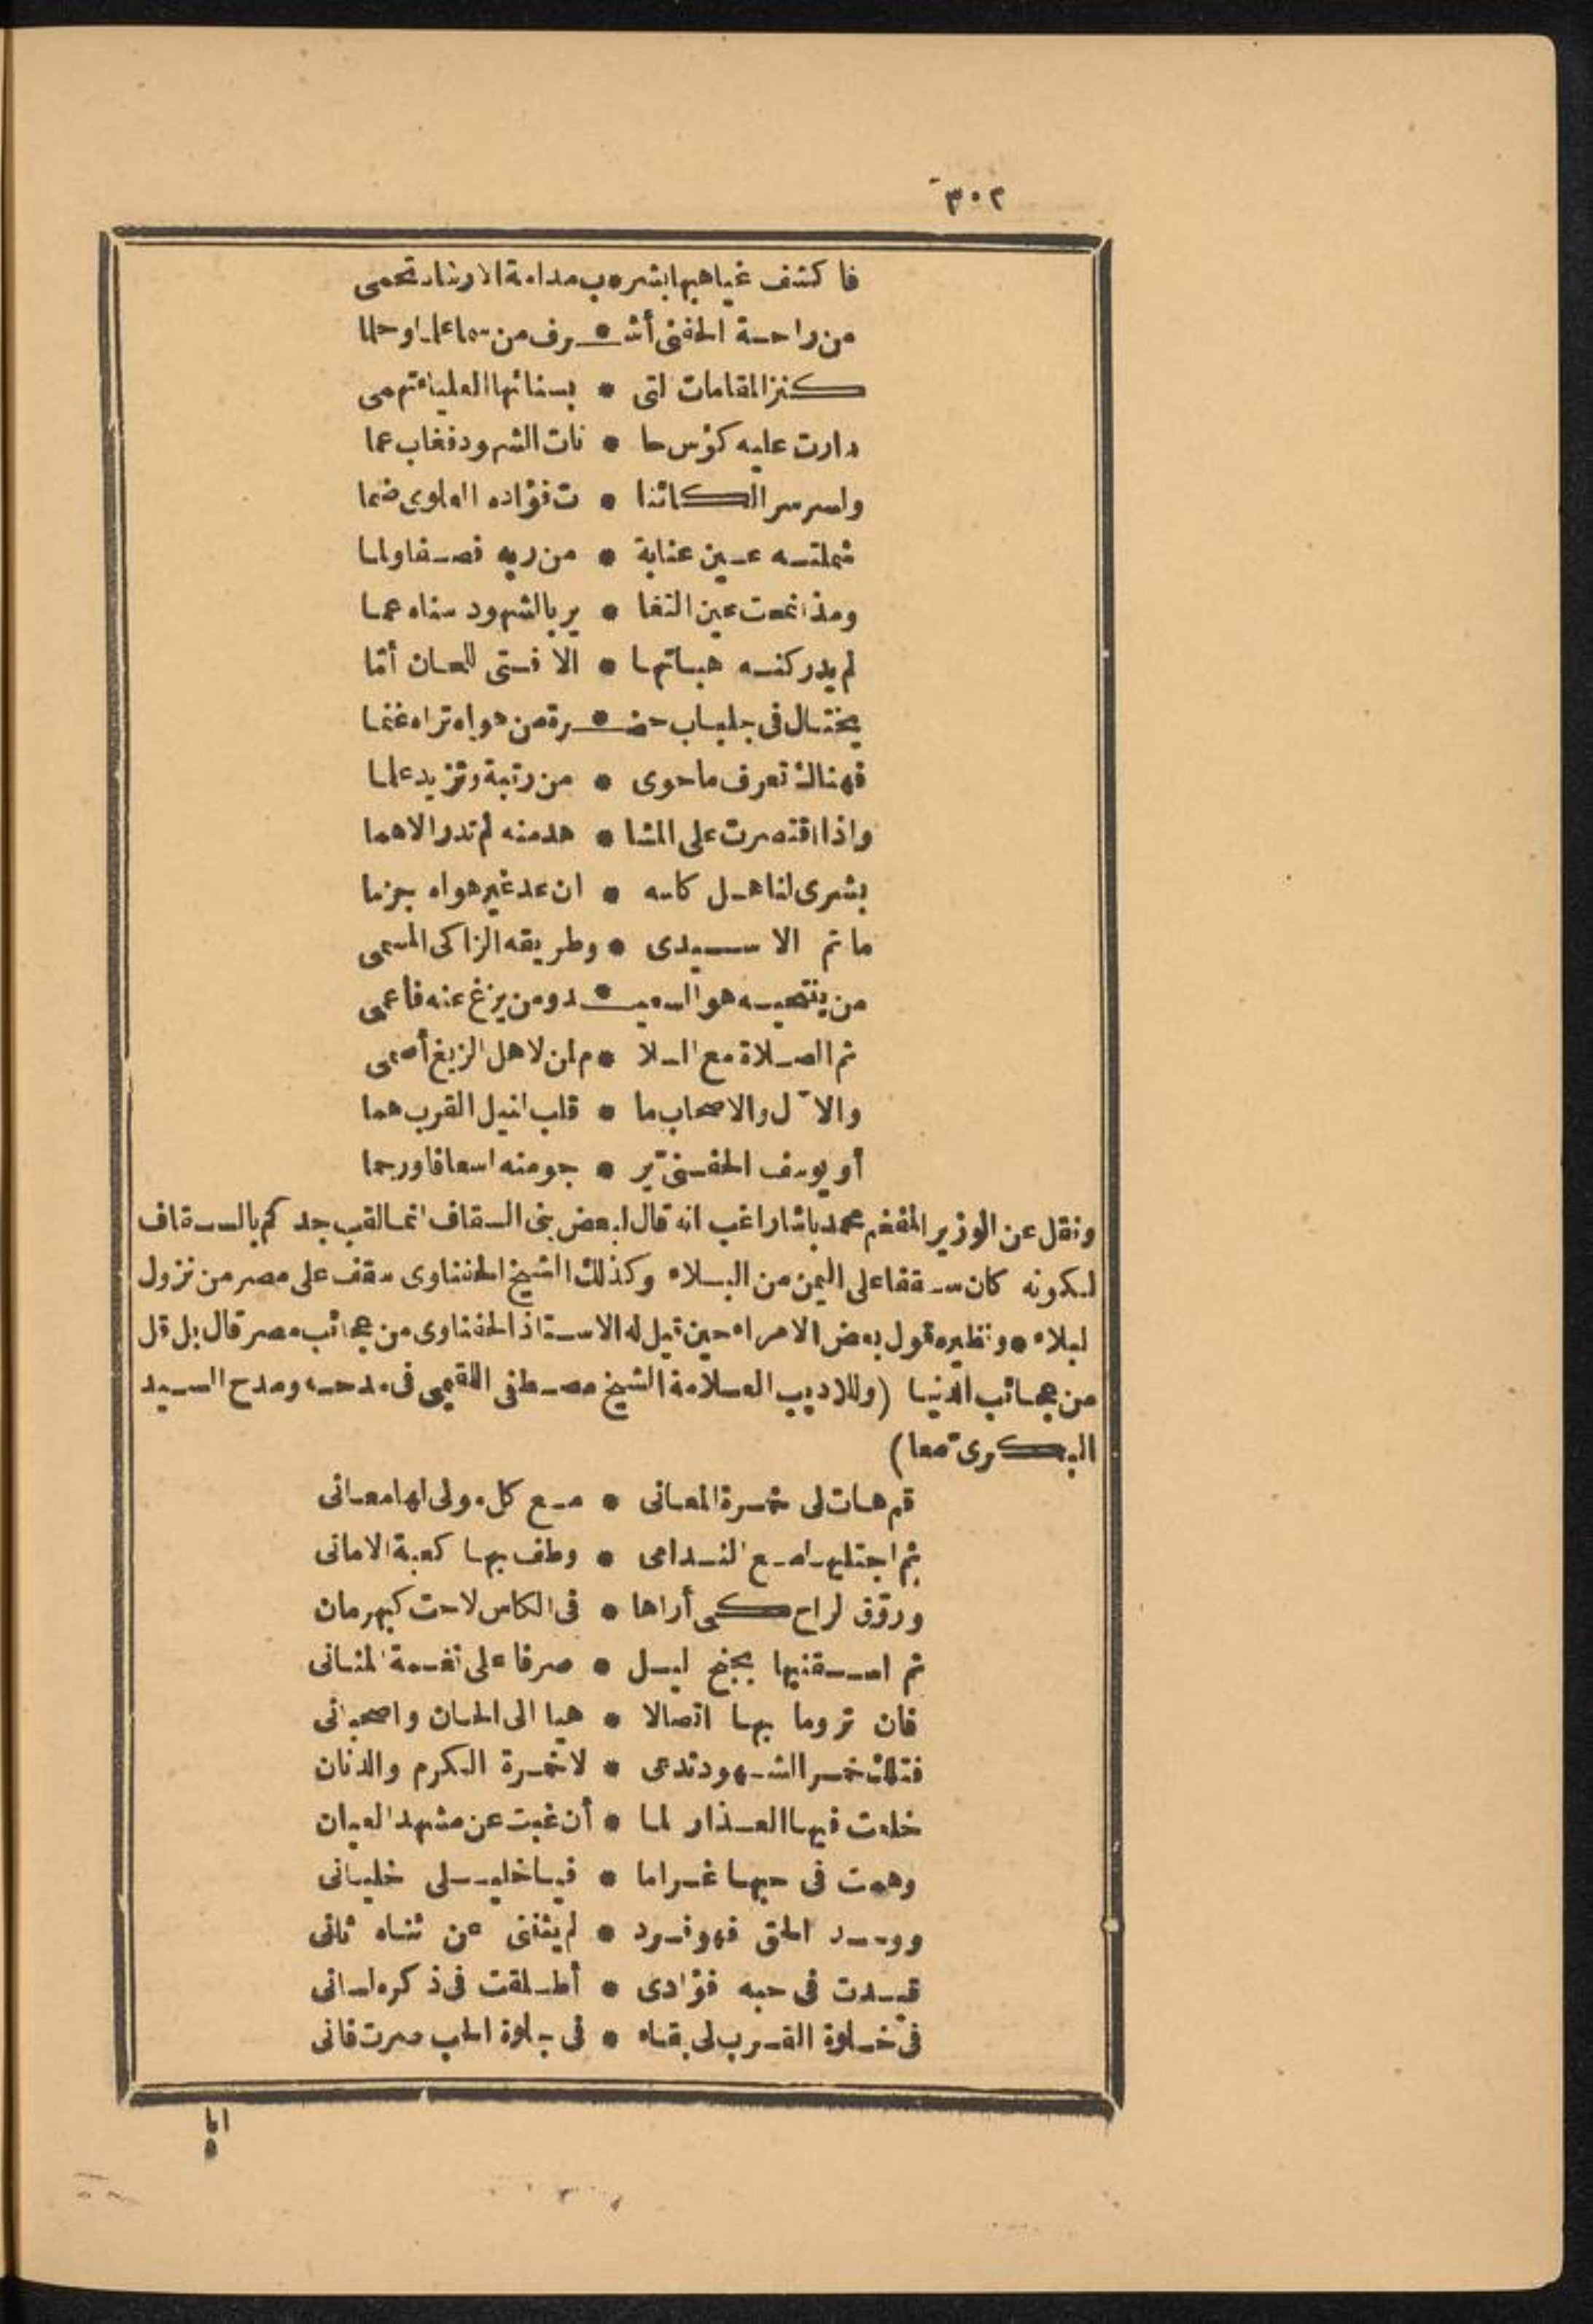 ٣٠٢
فاكشف غياهبها بشرب مدامة الارشاد تحمى
من راحة الحفنى أشـ * ـرف من سما علما وحلما
كنز المقامات التى * بسنائها العلياء تهمى
دارت عليه كؤس حا * نات الشهود فغاب عما
ولسر سر الكائنا * ت فؤاده العلوى ضما
شملته عين عناية * من ربه فصفا ولما
ومذ انمحت عين التغا * ير بالشهود سناه عما
لم يدر كنه هباتها * الا فتى للحان أما
يختال فى جلباب حضـ * ـرة من هواه تراه غنما
فهناك تعرف ما حوى * من رتبة وتزيد علما
واذا اقتصرت على المشا * هد منه لم تدر الاهما
بشرى لناهل كاسه * ان عد غير هواه جرما
ما تم الا سيدى * وطريقه الزاكى المسمى
من ينتحيه هو السعيـ * ـد ومن يزغ عنه فاعمى
ثم الصلاة مع السلا * م لمن لاهل الزيغ أصمى
والآل والاصحاب ما * قلب لنيل القرب هما
أو يوسف الحفنى ير * جو منه اسعافا ورحما
ونقل عن الوزير المفخم محمد باشا راغب انه قال لبعض بنى السقاف انما لقب جدكم بالسقاف
لكونه كان سقفا على اليمن من البلاء وكذلك الشيخ الحفناوى سقف على مصر من نزول
البلاء * ونظيره قول بعض الامراء حين قيل له الاستاذ الحفناوى من عجائب مصر قال بل قل
من عجائب الدنيا (وللاديب العلامة الشيخ مصطفى اللقيمى فى مدحه ومدح السيد
البكرى معا)
قم هات لى خمرة المعانى * مع كل مولى لها معانى
ثم اجتليها مع الندامى * وطف بها كعبة الامانى
وروق الراح كى أراها * فى الكاس لاحت كبهرمان
ثم اسقنيها بجنح ليل * صرفا على نغمة المثانى
فان تروما بها اتصالا * هيا الى الحان واصحبانى
فتلك خمر الشهود تدعى * لا خمرة الكرم والدنان
خلعت فيها العذار لما * أن غبت عن مشهد العيان
وهمت فى حبها غراما * فيا خليلى خليانى
ووحد الحق فهو فرد * لم يثننى عن ثناه ثانى
قيدت فى حبه فؤادى * أطلقت فى ذكره لسانى
فى خلوة القرب لى بقاء * فى جلوة الحب صرت فانى